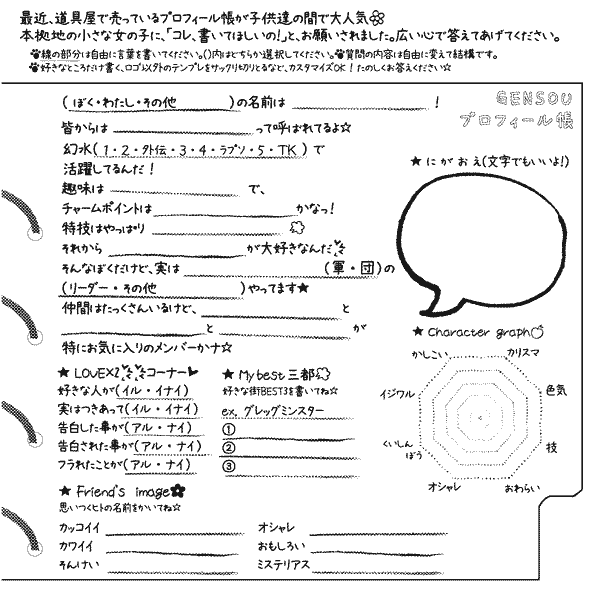 最近、道具屋で売っているプロフィール帳が子供達の間で大人気
本拠地の小さな女の子に、「コレ、書いてほしいの!」と、お願いされました。広い心で答えてあげてください。
線の部分は自由に言葉を書いてください。()内はどちらか選択してください。質問の内容は自由に変えて結構です。
好きなところだけ書く、ロゴ以外のテンプレをサックリ切りとるなど、カスタマイズOK!たのしくお答えください☆
GENSOU
プロフィール帳
(ぼく・わたし・その他 )の名前は !
皆からは って呼ばれてるよ☆
幻水(1・2・外伝・3・4・ラプソ・5・TK)で
活躍してるんだ!
趣味は で、
チャームポイントは かなっ!
特技はやっぱり
それから が大好きなんだ
そんなぼくだけど、実は (軍・団)の
(リーダー・その他 )やってます★
仲間はたっくさんいるけど、 と
と が
特にお気に入りのメンバーかナ☆
★にがおえ(文字でもいいよ!)
★Character graph
かしこい カリスマ
イジワル 色気
くいしんぼう 技
オシャレ おわらい
★LOVEXXコーナー
好きな人が(イル・イナイ)
実はつきあって(イル・イナイ)
告白した事が(アル・ナイ)
告白された事が(アル・ナイ)
フラれたことが(アル・ナイ)
★My best 三都
好きな街BEST3を書いてね☆
ex. グレッグミンスター
①
②
③
★Friend's image
思いつくヒトの名前をかいてね☆
カッコイイ オシャレ
カワイイ おもしろい
そんけい ミステリアス